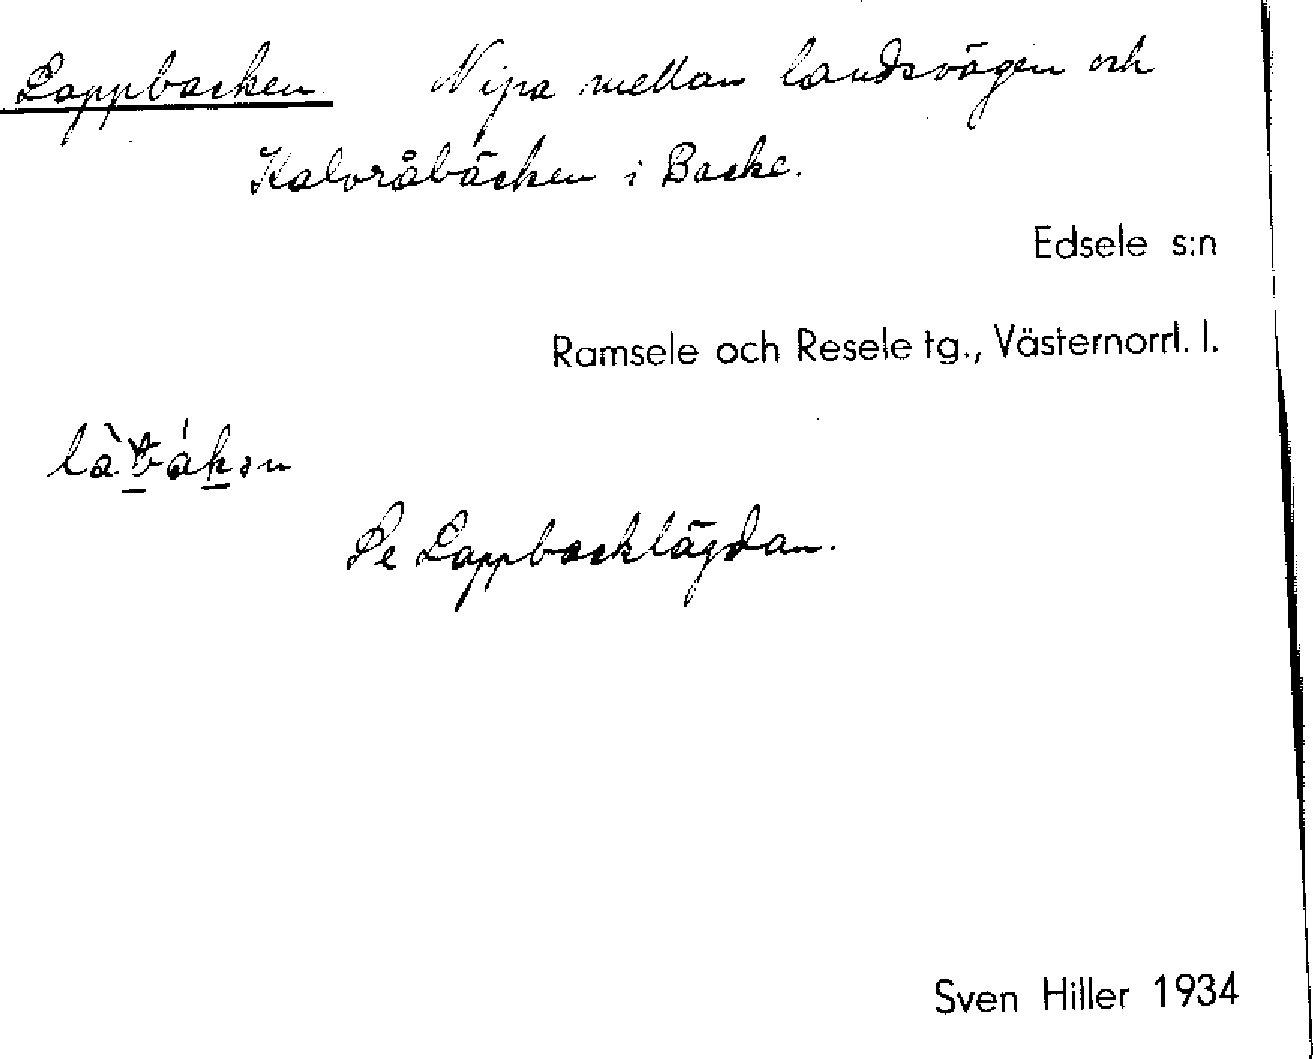 Lappbacken Nipa mellan landsvägen och
Kalvråbäcken i Backe.
Edsele s:n
Ramsele och Resele tg., Västernorrl. l.
Se Lappbacklägdan.
Sven Hiller 1934